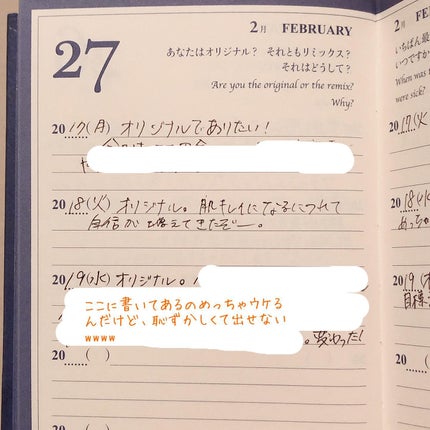 27
2月 FEBRUARY
あなたはオリジナル? それともリミックス?
それはどうして?
Are you the original or the remix?
Why?
2017(月) オリジナルでありたい!
2018(火) オリジナル。肌キレイになるにつれて
自信が増えてきたぞー。
2019(水) オリジナル。
ここに書いてあるのめっちゃウケる
んだけど、恥ずかしくて出せない
wwww
。変わった!
20 ( )
20 ( )
2月 FE
いちばん最
いつですか
When was
were sick?
2017(火
2018(水
めっちゃ
2019(木
目標
20 (
20 (